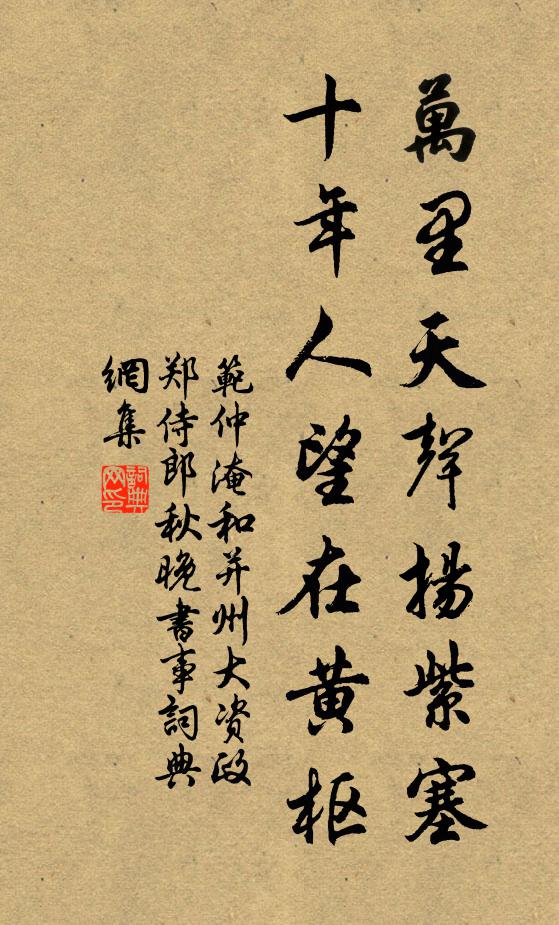 萬里天聲揚紫塞
十年人望在黄枢
範仲淹和并州大资政
郑侍郎秋晚書事詞典
網集
詞典
网印